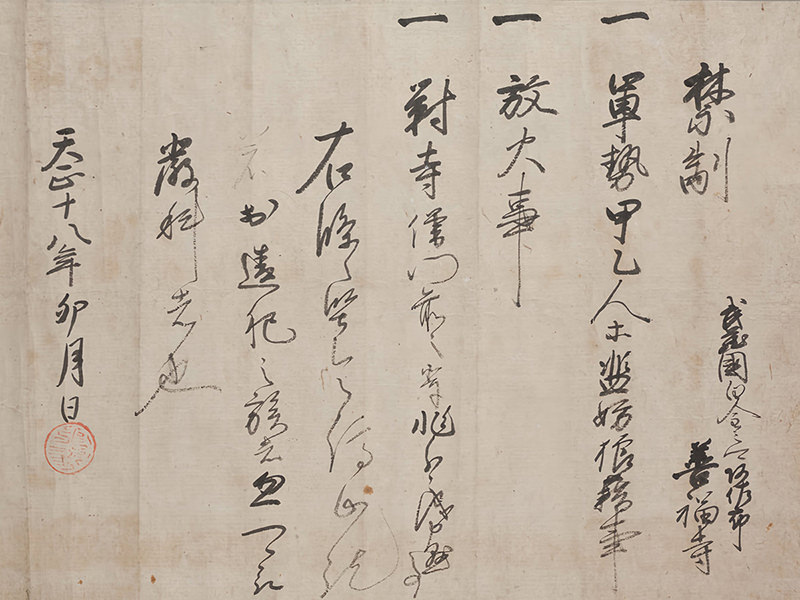 禁制
武蔵國白金之下阿佐布
善福寺
一 軍勢甲乙人等濫妨狼藉事
一 放火事
一 對寺僧門前之輩非分之儀申懸事
右條々堅令停止訖
若於違犯之族者忽可被
嚴科者也
天正十八年卯月日